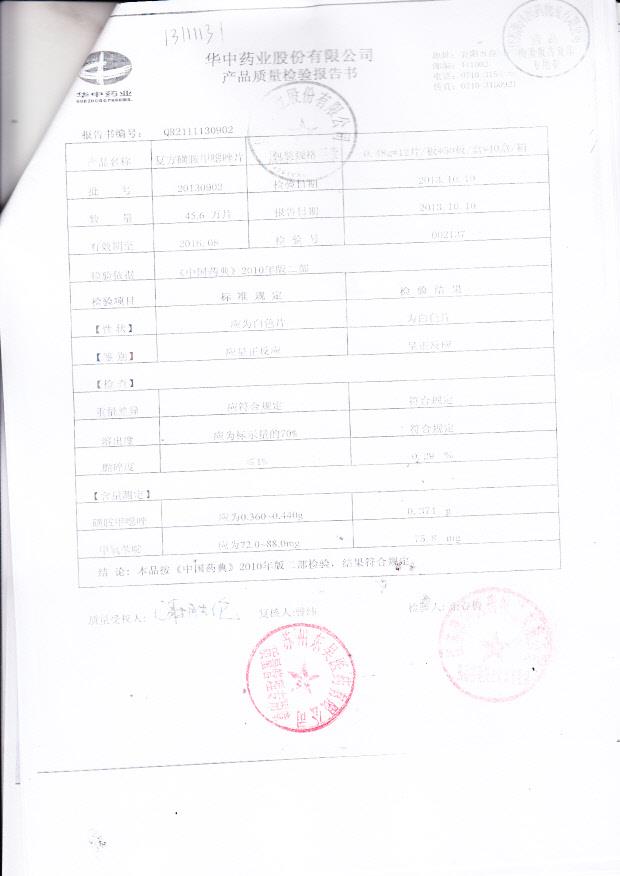 1311131
华中药业股份有限公司
产品质量检验报告书
华中药业
报告书编号: QR2111130902
产品名称 复方磺胺甲噁唑片 包装规格
批 号 20130902 检验日期 2013.10.10
数 量 45.6 万片 报告日期 2013.10.19
有效期至 2016.08 检 验 号 002137
检验依据 《中国药典》2010年版二部
检验项目 标 准 规 定 检 验 结 果
【性 状】 应为白色片 为白色片
【鉴 别】 应呈正反应 呈正反应
【检 查】
重量差异 应符合规定 符合规定
溶出度 应为标示量的70% 符合规定
脆碎度 ≤1% 0.28 %
【含量测定】
磺胺甲噁唑 应为0.360~0.440g 0.374 g
甲氧苄啶 应为72.0~88.0mg 75.8 mg
结 论: 本品按《中国药典》2010年版二部检验, 结果符合规定。
质量受权人: 复核人: 检验人:
股份有限公司
苏州东吴医药有限公司
质量管理专用章